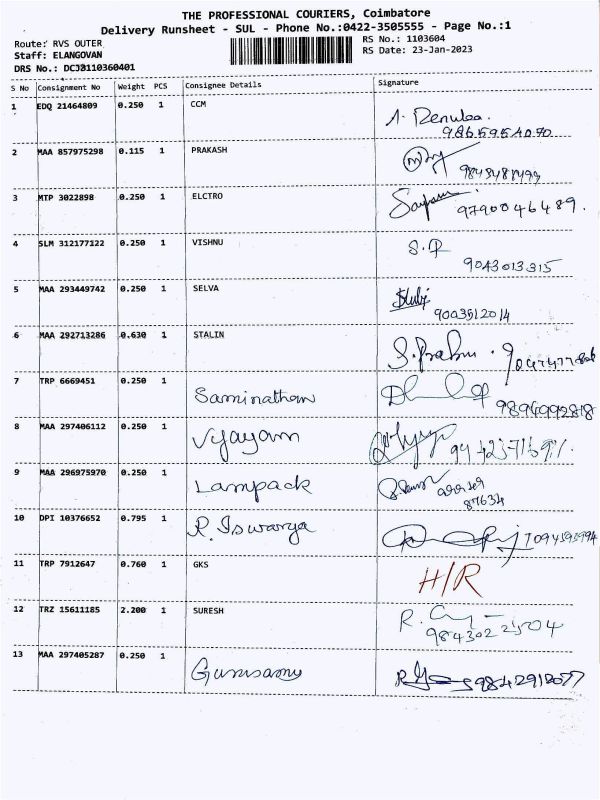 THE PROFESSIONAL COURIERS, Coimbatore
Delivery Runsheet - SUL - Phone No.:0422-3505555 - Page No.:1
Route: RVS OUTER
RS No.: 1103604
Staff: ELANGOVAN
RS Date: 23-Jan-2023
DRS No.: DCJ3110360401
S No Consignment No Weight PCS Consignee Details Signature
1 EDQ 21464809 0.250 1 CCM
2 MAA 857975298 0.115 1 PRAKASH
3 MTP 3022898 0.250 1 ELCTRO
9790046489.
4 SLM 312177122 0.250 1 VISHNU
9043013315
5 MAA 293449742 0.250 1 SELVA
9003512014
6 MAA 292713286 0.630 1 STALIN
S. Prabu.
7 TRP 6669451 0.250 1 Saminathan
9894992818
8 MAA 297406112 0.250 1 Vijayam
9 MAA 296975970 0.250 1 Lampack
87634
10 DPI 10376652 0.795 1 R. Iswarya
11 TRP 7912647 0.760 1 GKS H/R
12 TRZ 15611185 2.200 1 SURESH
13 MAA 297405287 0.250 1 Gurusamy